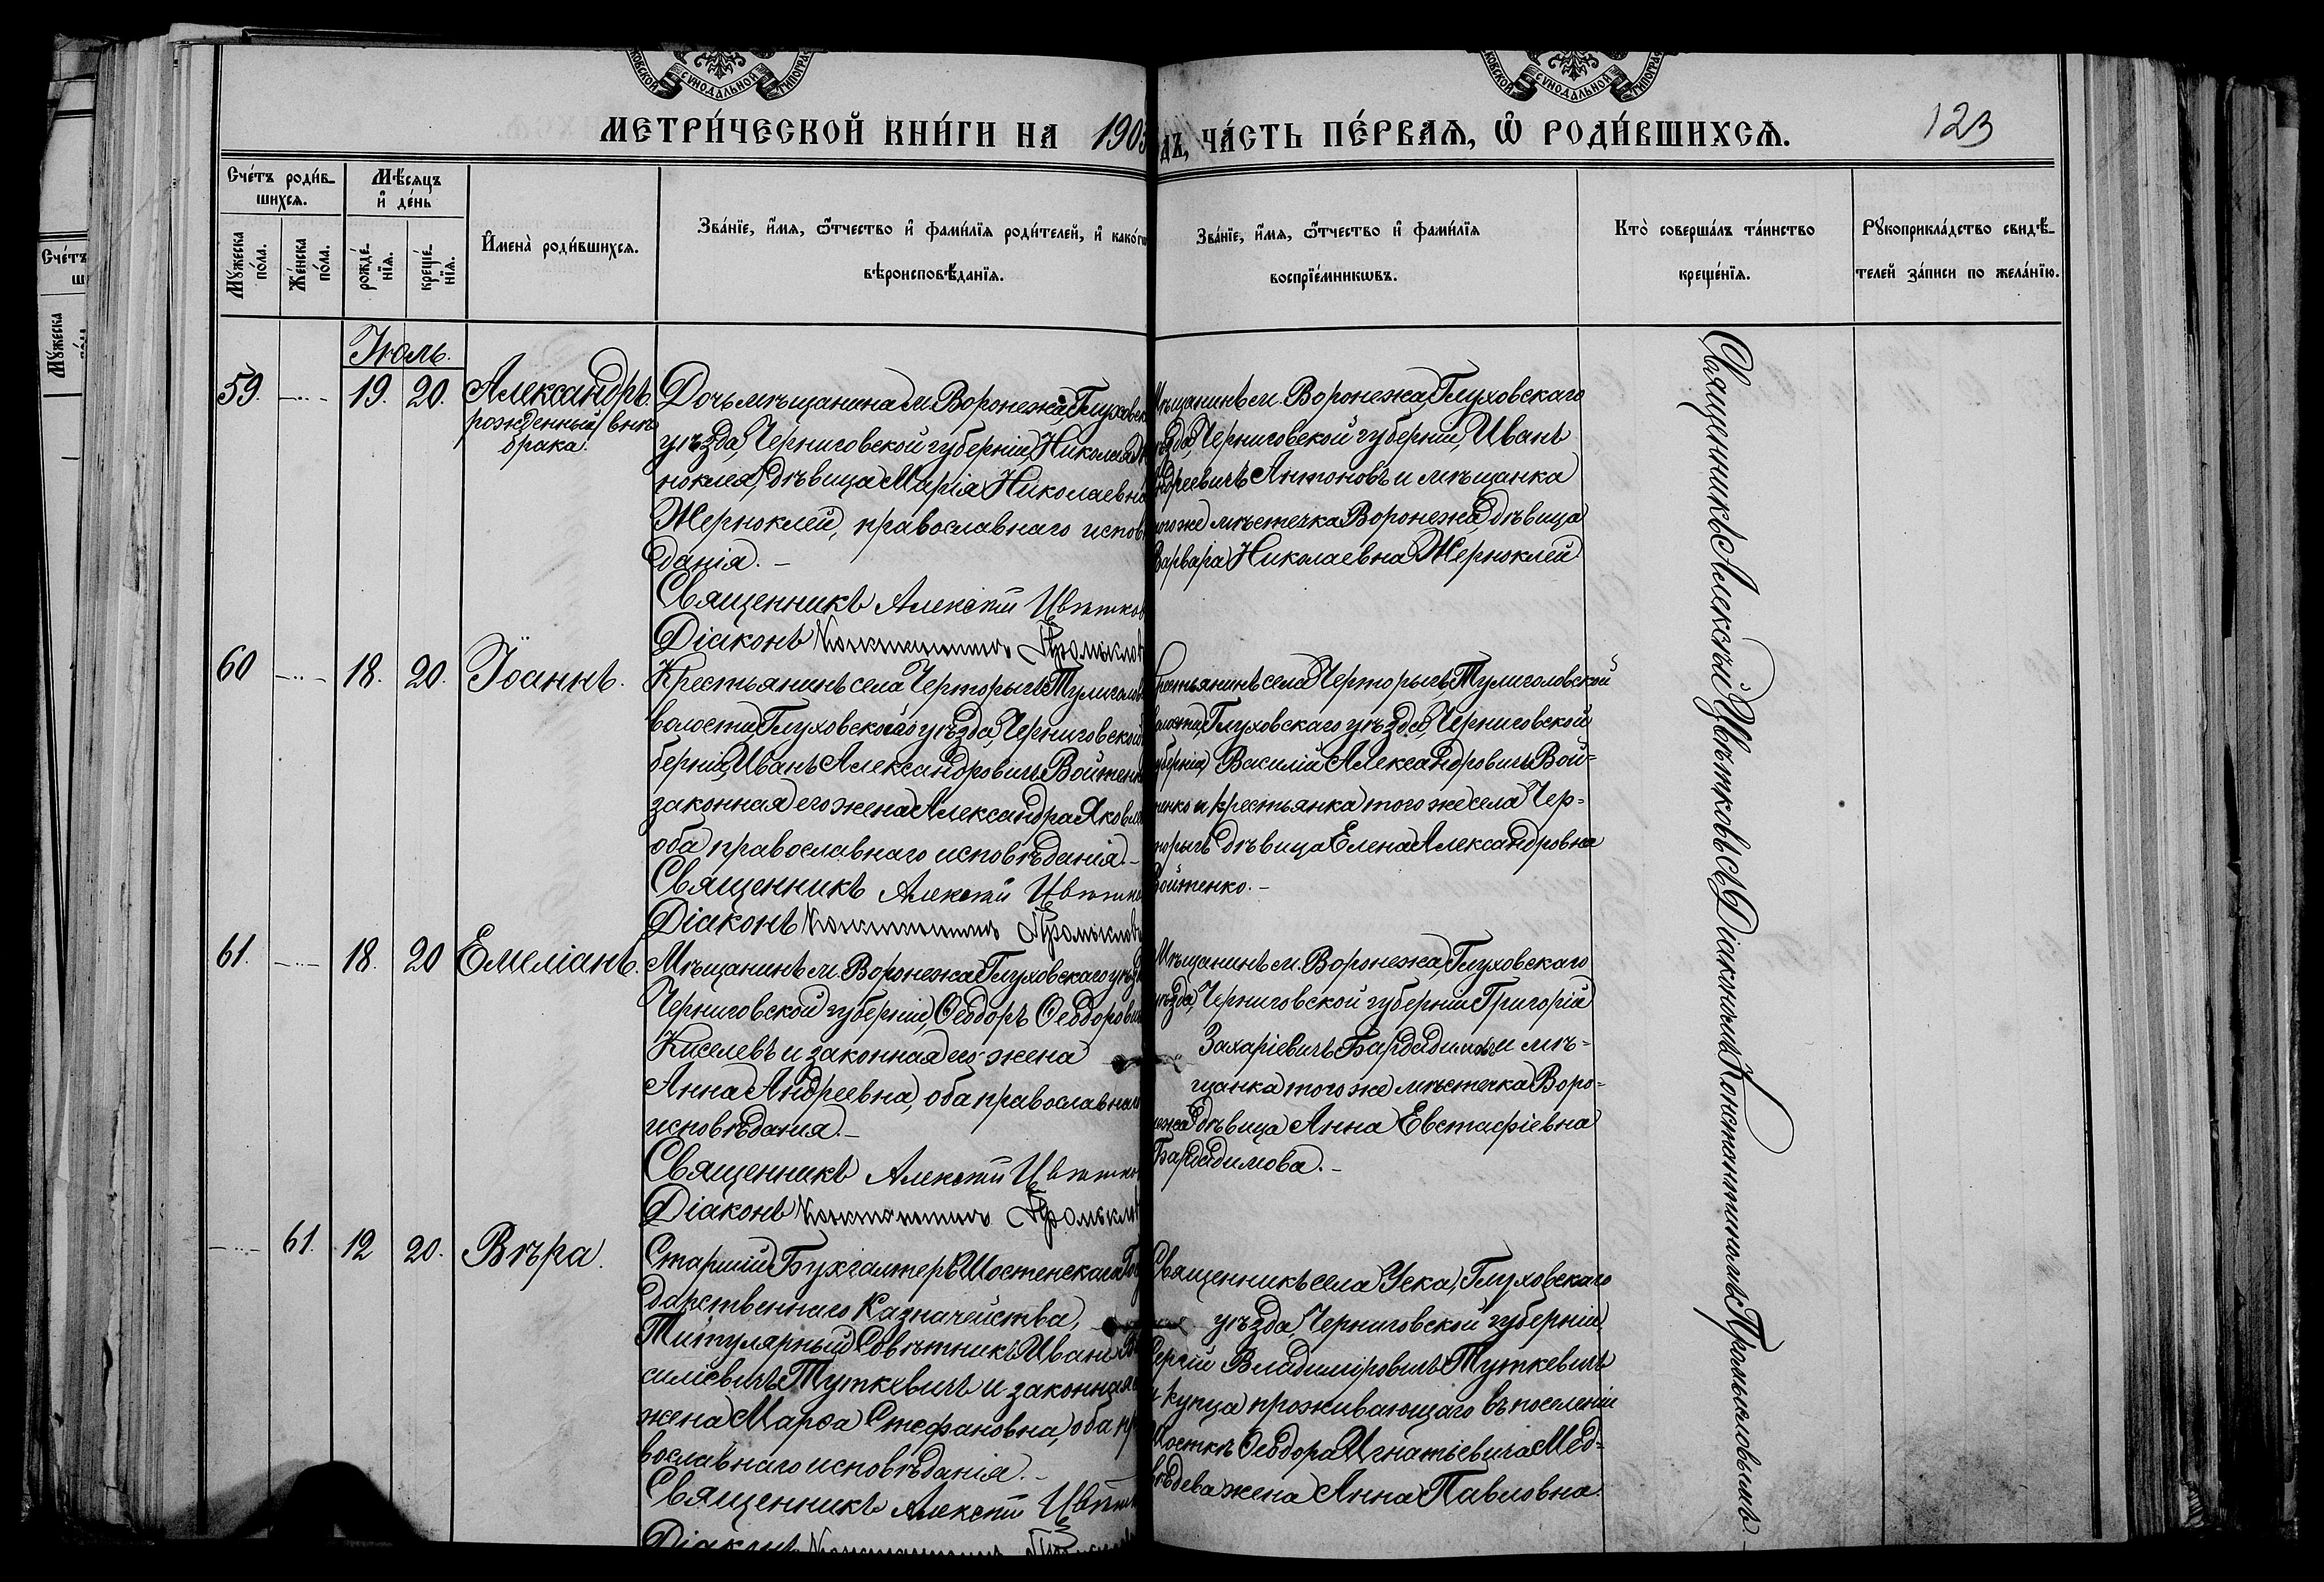 СѴНОДАЛЬНОЙ
СѴНОДАЛЬНОЙ
МЕТРИ́ЧЕСКОЙ КНИ́ГИ НА 1903
дъ, ЧА́СТЬ ПЕ́РВАѦ, Ѡ҆ РОДИ́ВШИХСѦ.
123
Сче́тъ роди́в-
шихсѧ.
Мꙋ́жеска
по́ла.
Же́нска
по́ла.
Мѣ́сѧцъ
и҆ де́нь
рожде́-
нїѧ.
креще́-
нїѧ.
И҆мена̀ роди́вшихсѧ.
Зва́нїе, и҆́мѧ, ѻ҆́тчество и҆ фами́лїѧ роди́телей, и҆ како́гѡ
вѣроисповѣ́данїѧ.
Зва́нїе, и҆́мѧ, ѻ҆́тчество и҆ фами́лїѧ
воспрїе́мникѡвъ.
Кто̀ соверша́лъ та́инство
креще́нїѧ.
Рꙋкоприкла́дство свидѣ́-
телей за́писи по жела́нїю.
Сче́тъ
Мꙋ́жеска
Іюль.
59. 19. 20. Александръ
рожденный внѣ
брака.
Дочь мѣщанина м. Воронежа, Глуховск
уѣзда, Черниговской губерніи, Николая
ноклея, дѣвица Марія Николаевна
Жерноклей, православнаго исповѣ
данія. –
Священникъ Алексѣй Цвѣтков
Діаконъ Константинъ Промыслов
Мѣщанинъ м. Воронежа, Глуховскаго
уѣзда, Черниговской губерніи, Иванъ
Андреевичъ Антоновъ и мѣщанка
того же мѣстечка Воронежа дѣвица
Варвара Николаевна Жерноклей
60 18. 20. Іоаннъ.
Крестьянинъ села Черторыгъ Тулиголов
волости, Глуховскаго уѣзда, Черниговской
берніи, Иванъ Александровичъ Войтенк
законная его жена Александра Яковле
оба православнаго исповѣданія. –
Священникъ Алексѣй Цвѣтко
Діаконъ Константинъ Промыслов
Крестьянинъ села Черторыгъ Тулиголовской
волости, Глуховскаго уѣзда, Черниговской
губерніи, Василій Александровичъ Вой-
тенко и крестьянка того же села Чер-
торыгъ дѣвица Елена Александровна
Войтенко. –
61. 18. 20 Емеліанъ.
Мѣщанинъ м. Воронежа Глуховскаго уѣзд
Черниговской губерніи, Ѳеодоръ Ѳеодорович
Киселевъ и законная его жена
Анна Андреевна, оба православнаго
исповѣданія. –
Священникъ Алексѣй Цвѣтко
Діаконъ Константинъ Промыслов
Мѣщанинъ м. Воронежа, Глуховскаго
уѣзда, Черниговской губерніи Григорій
Захаріевичъ и мѣ-
щанка того же мѣстечка Воро-
нежа дѣвица Анна Евстафіевна
61. 12 20. Вѣра.
Старшій Бухгалтеръ Шостенскаго Госу
дарственнаго Казначейства,
Титулярный Совѣтникъ Иванъ Ва
силіевичъ Туткевичъ и законная
жена Марѳа Стефановна, оба пр
вославнаго исповѣданія. –
Священникъ Алексѣй Цвѣтк
Діаконъ
Священникъ села Уска, Глуховскаго
уѣзда, Черниговской губерніи,
Сергій Владиміровичъ Туткевичъ
и купца проживающаго въ поселеніи
Шосткѣ Ѳеодора Игнатіевича Мед-
вѣдева жена Анна Павловна.
Священникъ Алексѣй Цвѣтковъ съ Діакономъ Константиномъ Промысловымъ. –